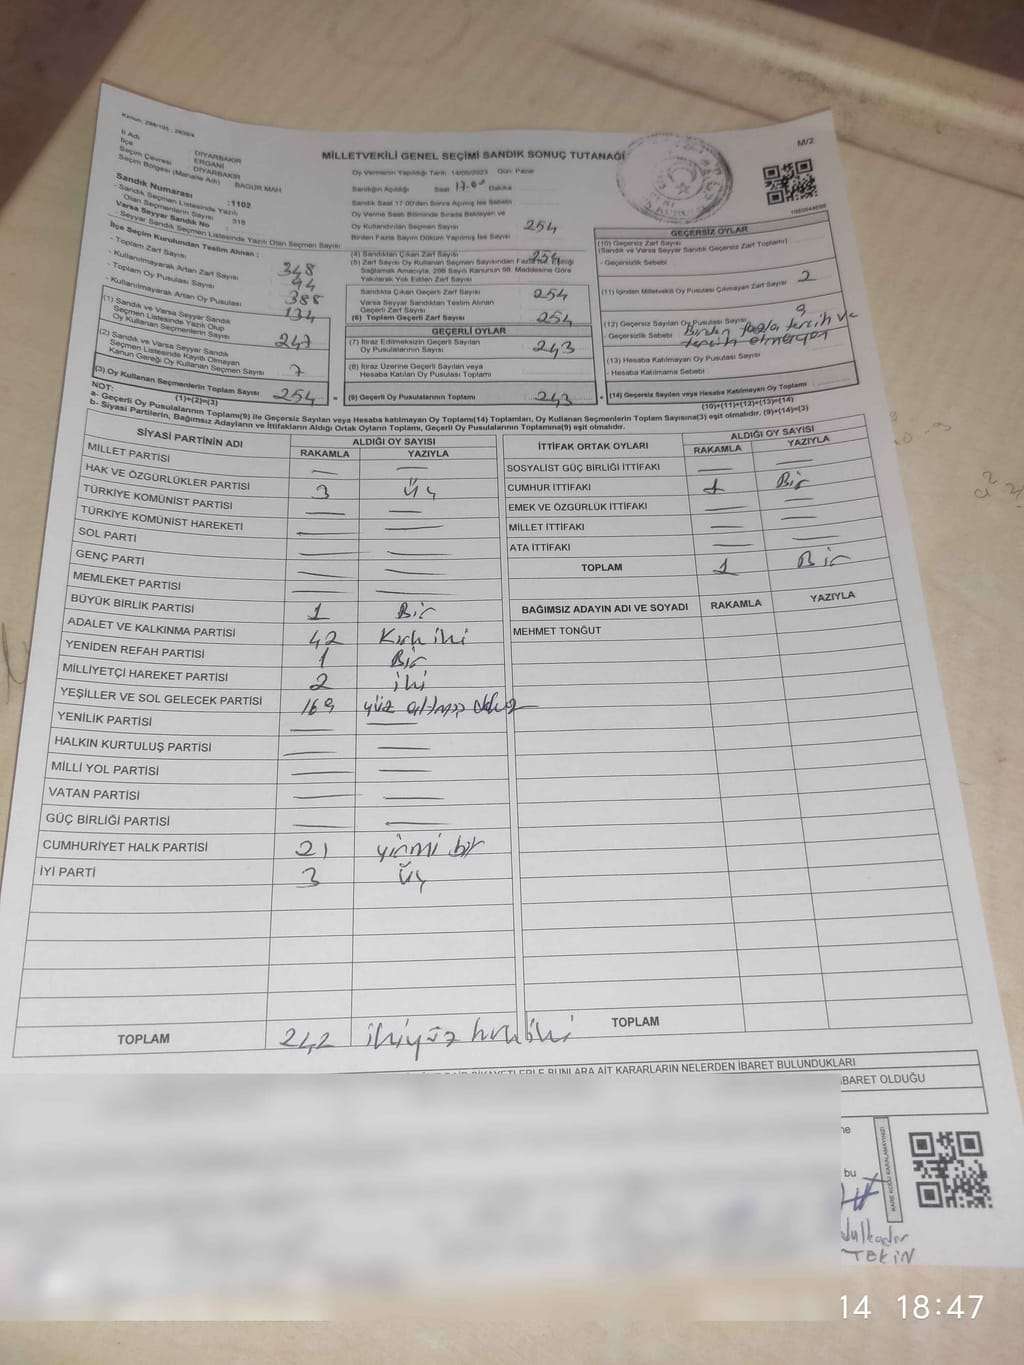 Kanun: 298/105 , 2839/4
M/2
İl Adı DİYARBAKIR
İlçe ERGANİ
Seçim Çevresi DİYARBAKIR
Seçim Bölgesi (Mahalle Adı) BAGÜR MAH
MİLLETVEKİLİ GENEL SEÇİMİ SANDIK SONUÇ TUTANAĞI
Sandık Numarası :1102
- Sandık Seçmen Listesinde Yazılı
Olan Seçmenlerin Sayısı 318
Varsa Seyyar Sandık No
- Seyyar Sandık Seçmen Listesinde Yazılı Olan Seçmen Sayısı
İlçe Seçim Kurulundan Teslim Alınan ;
- Toplam Zarf Sayısı 348
- Kullanılmayarak Artan Zarf Sayısı 94
- Toplam Oy Pusulası Sayısı 388
- Kullanılmayarak Artan Oy Pusulası 134
(1) Sandık ve Varsa Seyyar Sandık
Seçmen Listesinde Yazılı Olup
Oy Kullanan Seçmenlerin Sayısı 247
(2) Sandık ve Varsa Seyyar Sandık
Seçmen Listesinde Kayıtlı Olmayan
Kanun Gereği Oy Kullanan Seçmen Sayısı 7
(3) Oy Kullanan Seçmenlerin Toplam Sayısı 254
(1)+(2)=(3)
Oy Vermenin Yapıldığı Tarih 14/05/2023 Gün: Pazar
Sandığın Açıldığı Saat 17.00 Dakika
Sandık Saat 17.00'den Sonra Açılmış İse Sebebi
Oy Verme Saati Bitiminde Sırada Bekleyen ve
Oy Kullandırılan Seçmen Sayısı 254
Birden Fazla Sayım Döküm Yapılmış İse Sayısı
(4) Sandıktan Çıkan Zarf Sayısı 254
(5) Zarf Sayısı Oy Kullanan Seçmen Sayısından Fazla ise, Eşitliği
Sağlamak Amacıyla, 298 Sayılı Kanunun 98. Maddesine Göre
Yakılarak Yok Edilen Zarf Sayısı
Sandıkta Çıkan Geçerli Zarf Sayısı 254
Varsa Seyyar Sandıktan Teslim Alınan
Geçerli Zarf Sayısı
(6) Toplam Geçerli Zarf Sayısı 254
GEÇERLİ OYLAR
(7) İtiraz Edilmeksizin Geçerli Sayılan
Oy Pusulalarının Sayısı 243
(8) İtiraz Üzerine Geçerli Sayılan veya
Hesaba Katılan Oy Pusulası Toplamı
(9) Geçerli Oy Pusulalarının Toplamı 243
GEÇERSİZ OYLAR
(10) Geçersiz Zarf Sayısı
(Sandık ve Varsa Seyyar Sandık Geçersiz Zarf Toplamı)
- Geçersizlik Sebebi
(11) İçinden Milletvekili Oy Pusulası Çıkmayan Zarf Sayısı 2
(12) Geçersiz Sayılan Oy Pusulası Sayısı 9
- Geçersizlik Sebebi Birden fazla tercih ve
tercih olmayan
(13) Hesaba Katılmayan Oy Pusulası Sayısı
- Hesaba Katılmama Sebebi
(14) Geçersiz Sayılan veya Hesaba Katılmayan Oy Toplamı
(10)+(11)+(12)+(13)=(14)
NOT:
a- Geçerli Oy Pusulalarının Toplamı(9) ile Geçersiz Sayılan veya Hesaba katılmayan Oy Toplamı(14) Toplamları, Oy Kullanan Seçmenlerin Toplam Sayısına(3) eşit olmalıdır. (9)+(14)=(3)
b- Siyasi Partilerin, Bağımsız Adayların ve İttifakların Aldığı Ortak Oyların Toplamı, Geçerli Oy Pusulalarının Toplamına(9) eşit olmalıdır.
SİYASİ PARTİNİN ADI ALDIĞI OY SAYISI
RAKAMLA YAZIYLA
MİLLET PARTİSİ
HAK VE ÖZGÜRLÜKLER PARTİSİ 3 Üç
TÜRKİYE KOMÜNİST PARTİSİ
TÜRKİYE KOMÜNİST HAREKETİ
SOL PARTİ
GENÇ PARTİ
MEMLEKET PARTİSİ
BÜYÜK BİRLİK PARTİSİ 1 Bir
ADALET VE KALKINMA PARTİSİ 42 Kırk iki
YENİDEN REFAH PARTİSİ 1 Bir
MİLLİYETÇİ HAREKET PARTİSİ 2 iki
YEŞİLLER VE SOL GELECEK PARTİSİ 169 yüz altmış dokuz
YENİLİK PARTİSİ
HALKIN KURTULUŞ PARTİSİ
MİLLİ YOL PARTİSİ
VATAN PARTİSİ
GÜÇ BİRLİĞİ PARTİSİ
CUMHURİYET HALK PARTİSİ 21 yirmi bir
İYİ PARTİ 3 Üç
TOPLAM 242 ikiyüz kırk iki
İTTİFAK ORTAK OYLARI ALDIĞI OY SAYISI
RAKAMLA YAZIYLA
SOSYALİST GÜÇ BİRLİĞİ İTTİFAKI
CUMHUR İTTİFAKI 1 Bir
EMEK VE ÖZGÜRLÜK İTTİFAKI
MİLLET İTTİFAKI
ATA İTTİFAKI
TOPLAM 1 Bir
BAĞIMSIZ ADAYIN ADI VE SOYADI RAKAMLA YAZIYLA
MEHMET TONĞUT
TOPLAM
BUNLARA AİT KARARLARIN NELERDEN İBARET BULUNDUKLARI
İBARET OLDUĞU
bu
KARE KODU KARALAMAYINIZ!
TEKİN
14 18:47